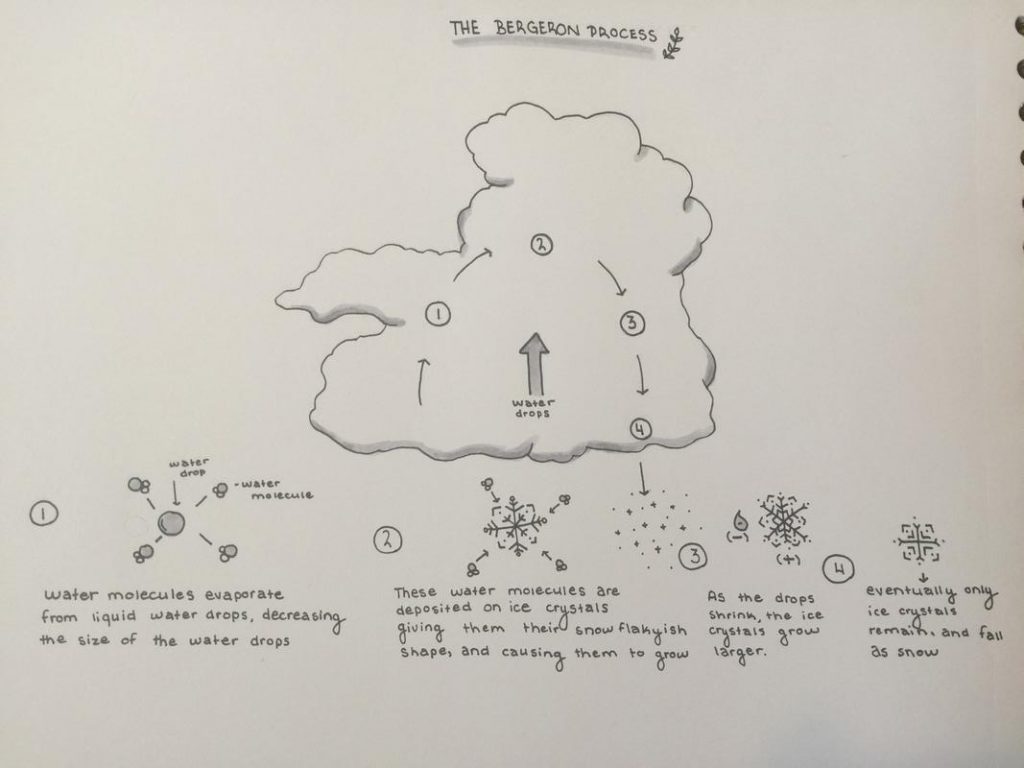 THE BERGERON PROCESS
2
1
3
water
drops
4
water
drop
-water
molecule
1
water molecules evaporate
from liquid water drops, decreasing
the size of the water drops
2
These water molecules are
deposited on ice crystals
giving them their snowflakyish
shape, and causing them to grow
3
(-)
(+)
As the drops
shrink, the ice
crystals grow
larger.
4
eventually only
ice crystals
remain, and fall
as snow